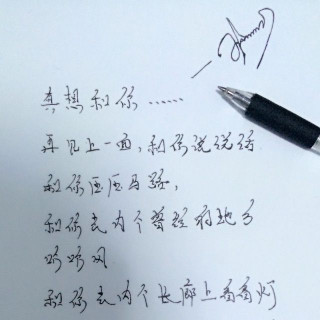 真想和你……
再见上一面,和你说说话
和你压压马路,
和你去内个曾经的地方
吹吹风
和你去内个长廊上看看灯